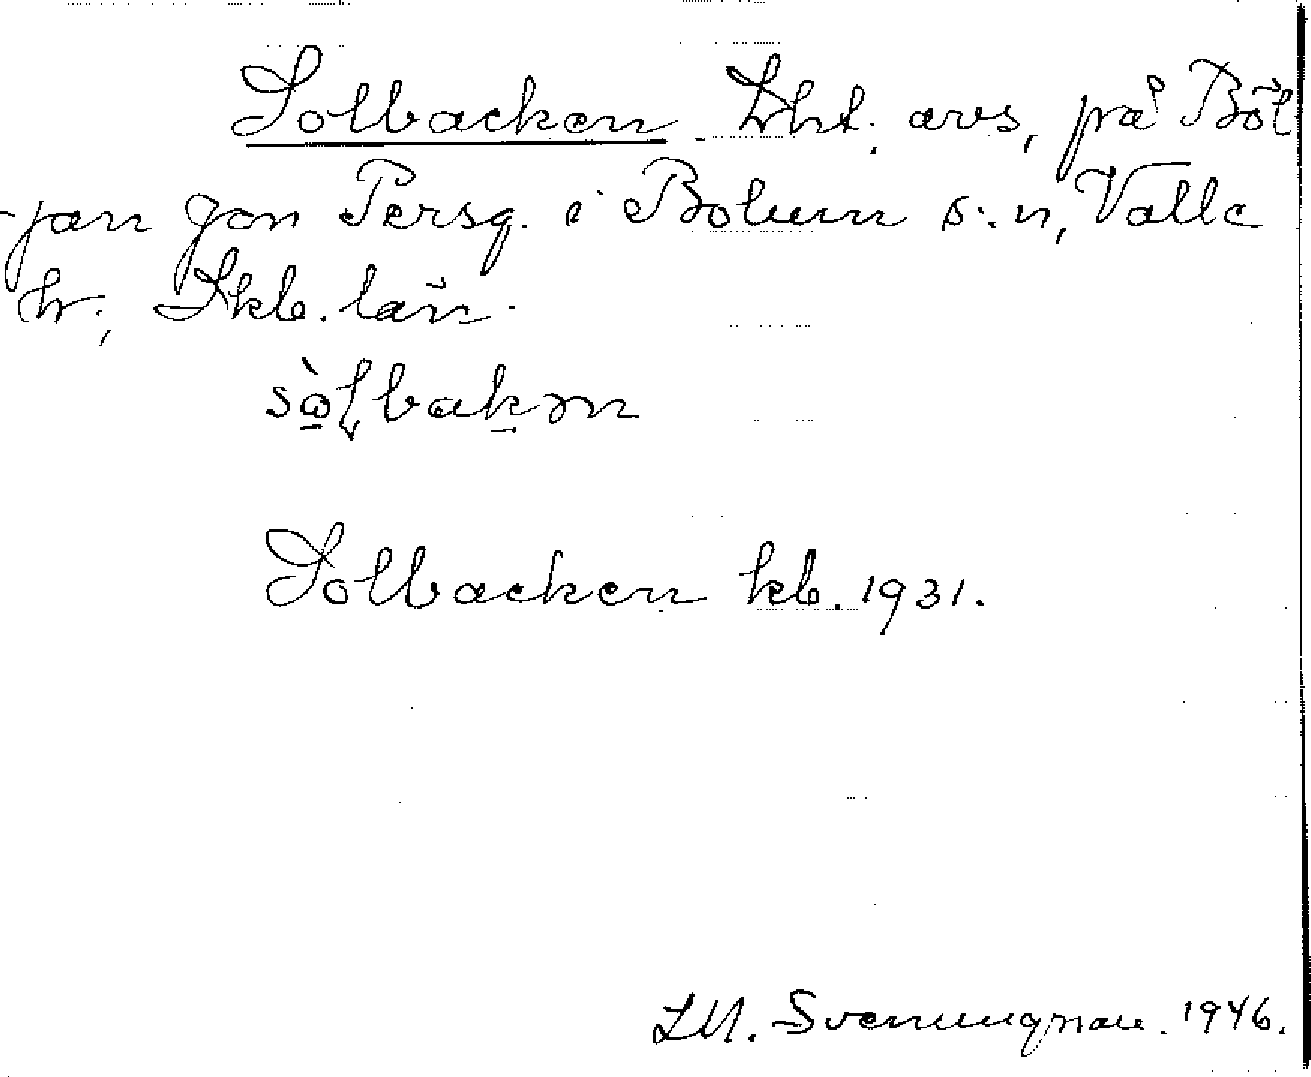 Solbacken. Lht. avs, på Böl
-jan Jon Persg. i Bolum s:n, Valle
hr; Skb. län.
sò̠ɭbak̠ən
Solbacken kb. 1931.
LM. Svenungsson. 1946.